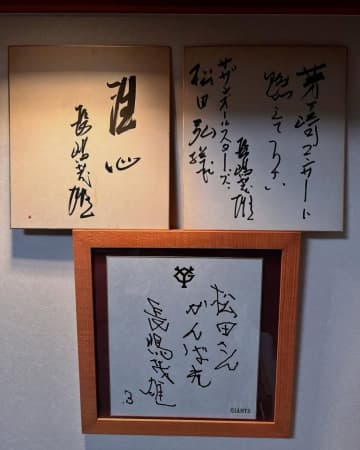 長嶋茂雄
茅ヶ崎コンサートに
燃えて下さい
長嶋茂雄
サザンオールスターズ
松田弘様
YG
松田さん
がんばれ
長嶋茂雄
3
GIANTS